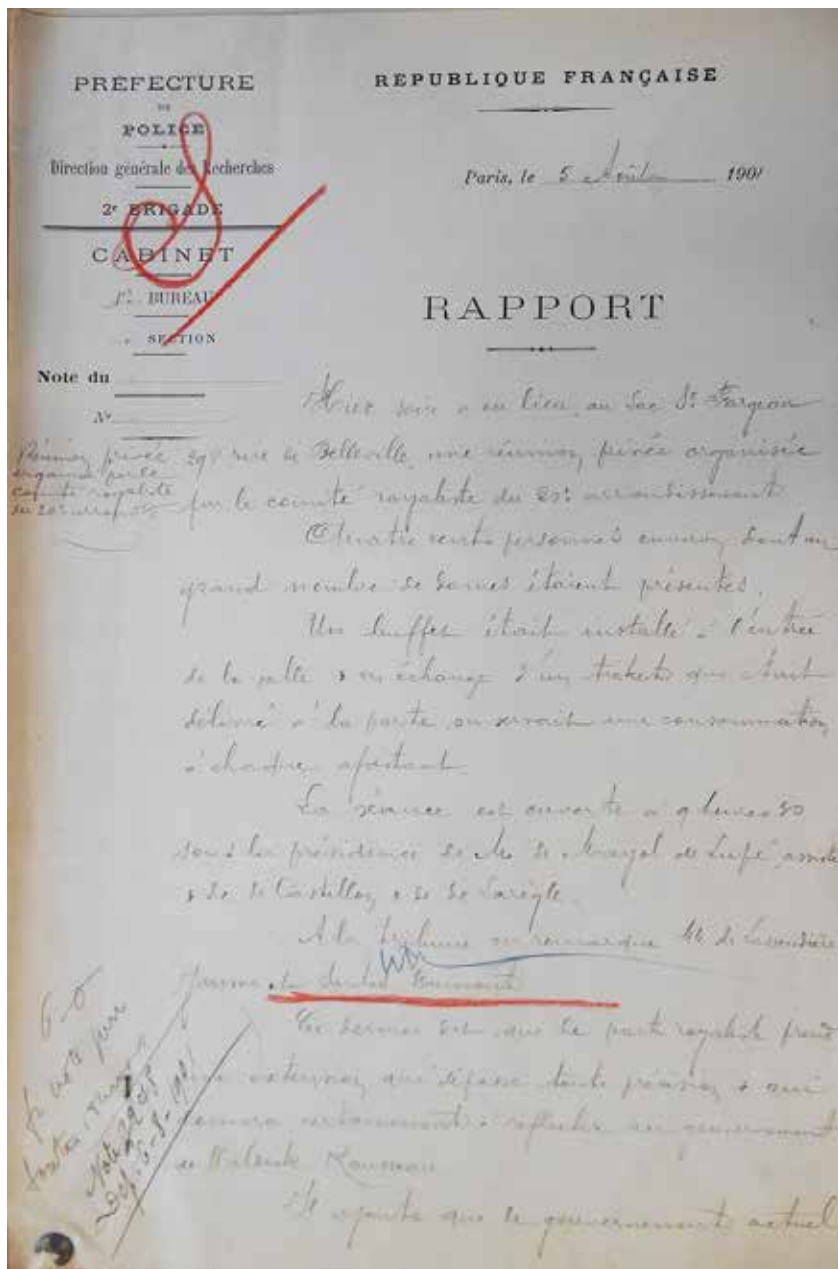 PREFECTURE
DE
POLICE
Direction générale des Recherches
2e BRIGADE
CABINET
1er BUREAU
SECTION
Note du
No
REPUBLIQUE FRANÇAISE
Paris, le 5 Août 1901
RAPPORT
Réunion privée
organisée par le
comité royaliste
du 20e arrondt
Hier soir a eu lieu, au Lac St Fargeau
rue de Belleville, une réunion privée organisée
par le comité royaliste du 20e arrondissement
Quatre cents personnes environ dont un
grand nombre de dames étaient présentes.
Un buffet était installé à l'entrée
de la salle & en échange d'un tickets qui était
délivré à la porte on servait une consommation
à chaque assistant.
La séance est ouverte à 9 heures 30
sous la présidence de Mr de Mayol de Lupé, assisté
de de Castillon & de de Larègle.
A la tribune on remarque MM de
Ce dernier dit que le parti royaliste prend
une extension qui dépasse toute prévision & qui
donnera certainement à réfléchir au gouvernement
de Waldeck Rousseau
Il ajoute que le gouvernement actuel